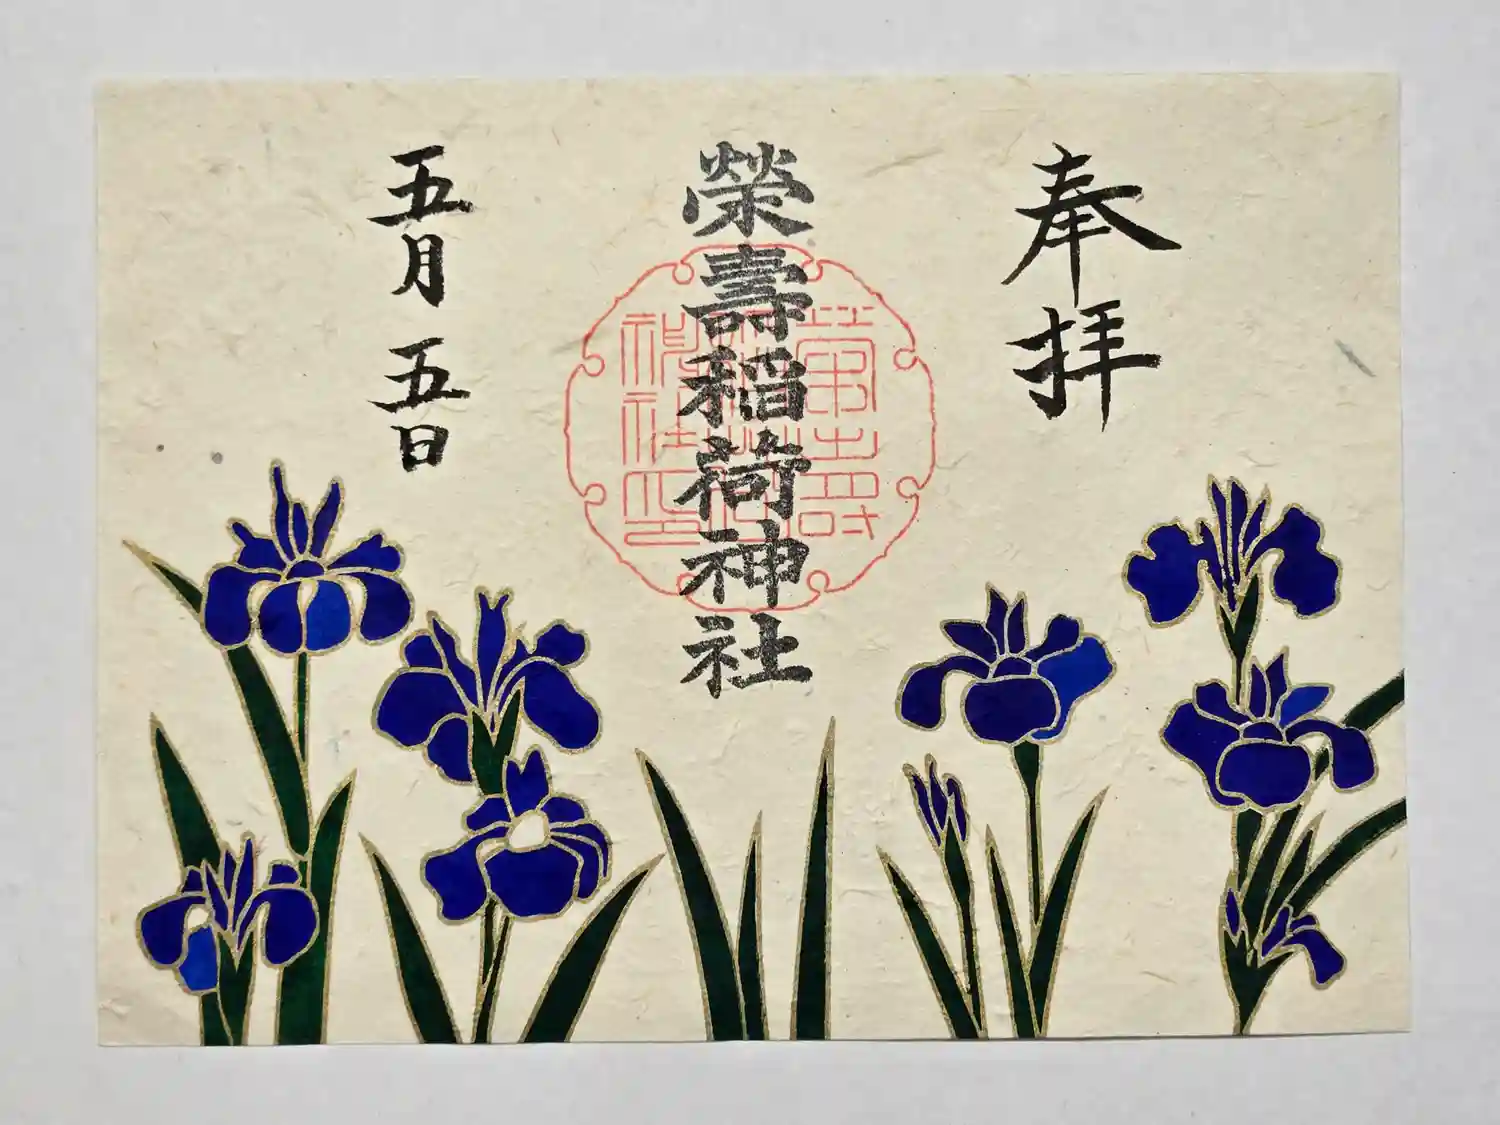 奉拝
榮壽稲荷神社
五月五日